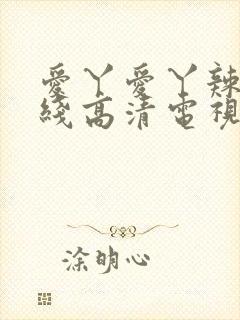 愛丫愛丫辣
綫高清電視
涂明心